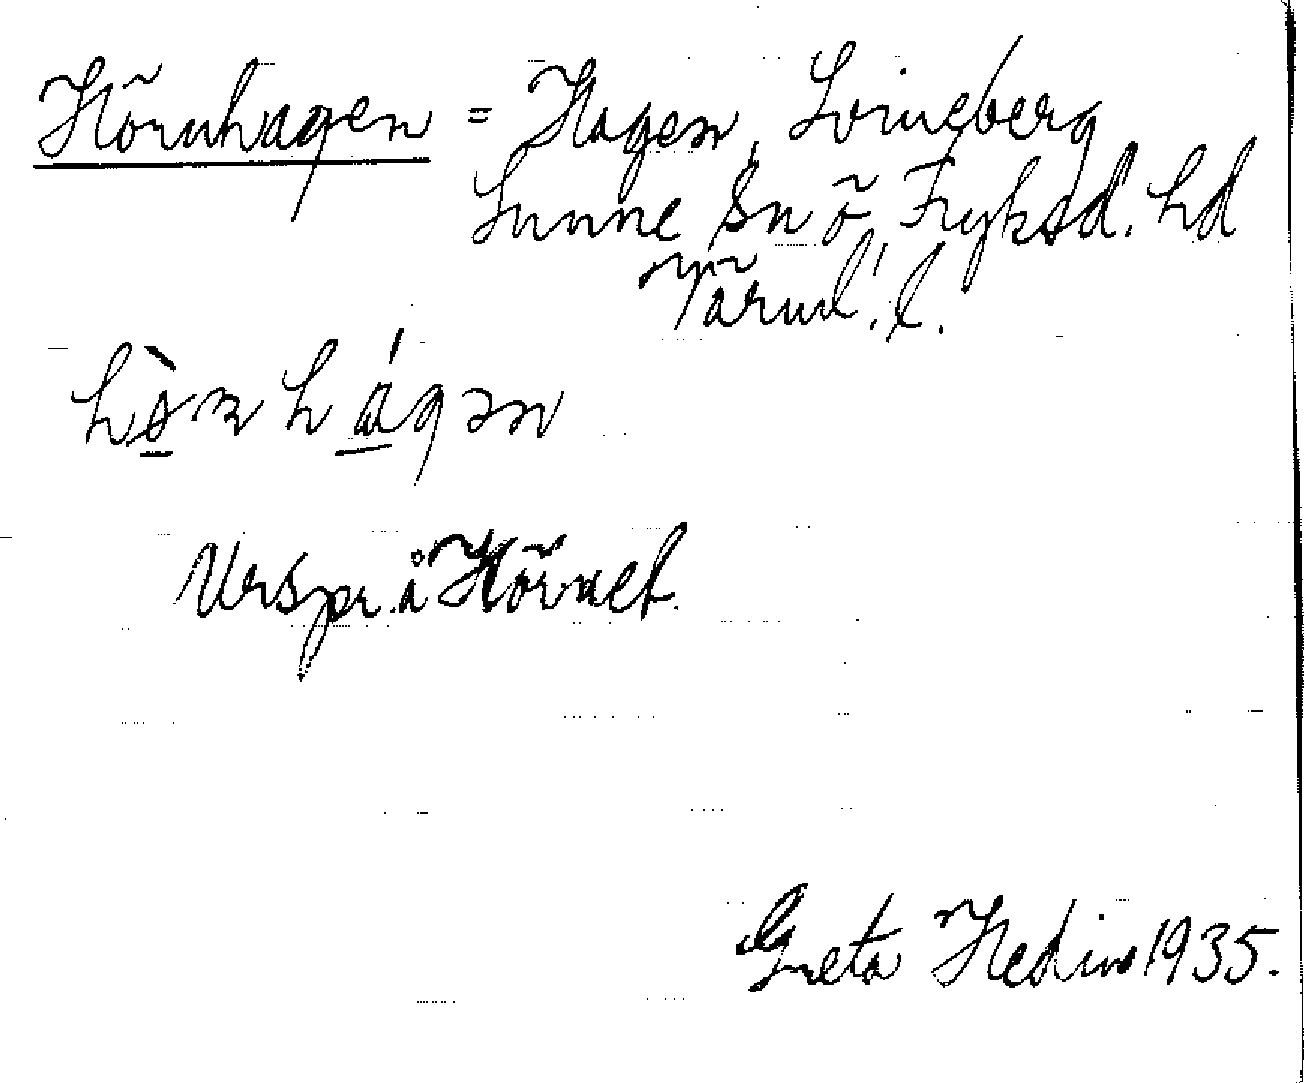 Hörnhagen = Hagen, Loineberg
Sunne sn ö. Fryksd. hd
Värml. l.
Urspr. å Hörnet.
Greta Hedin 1935.